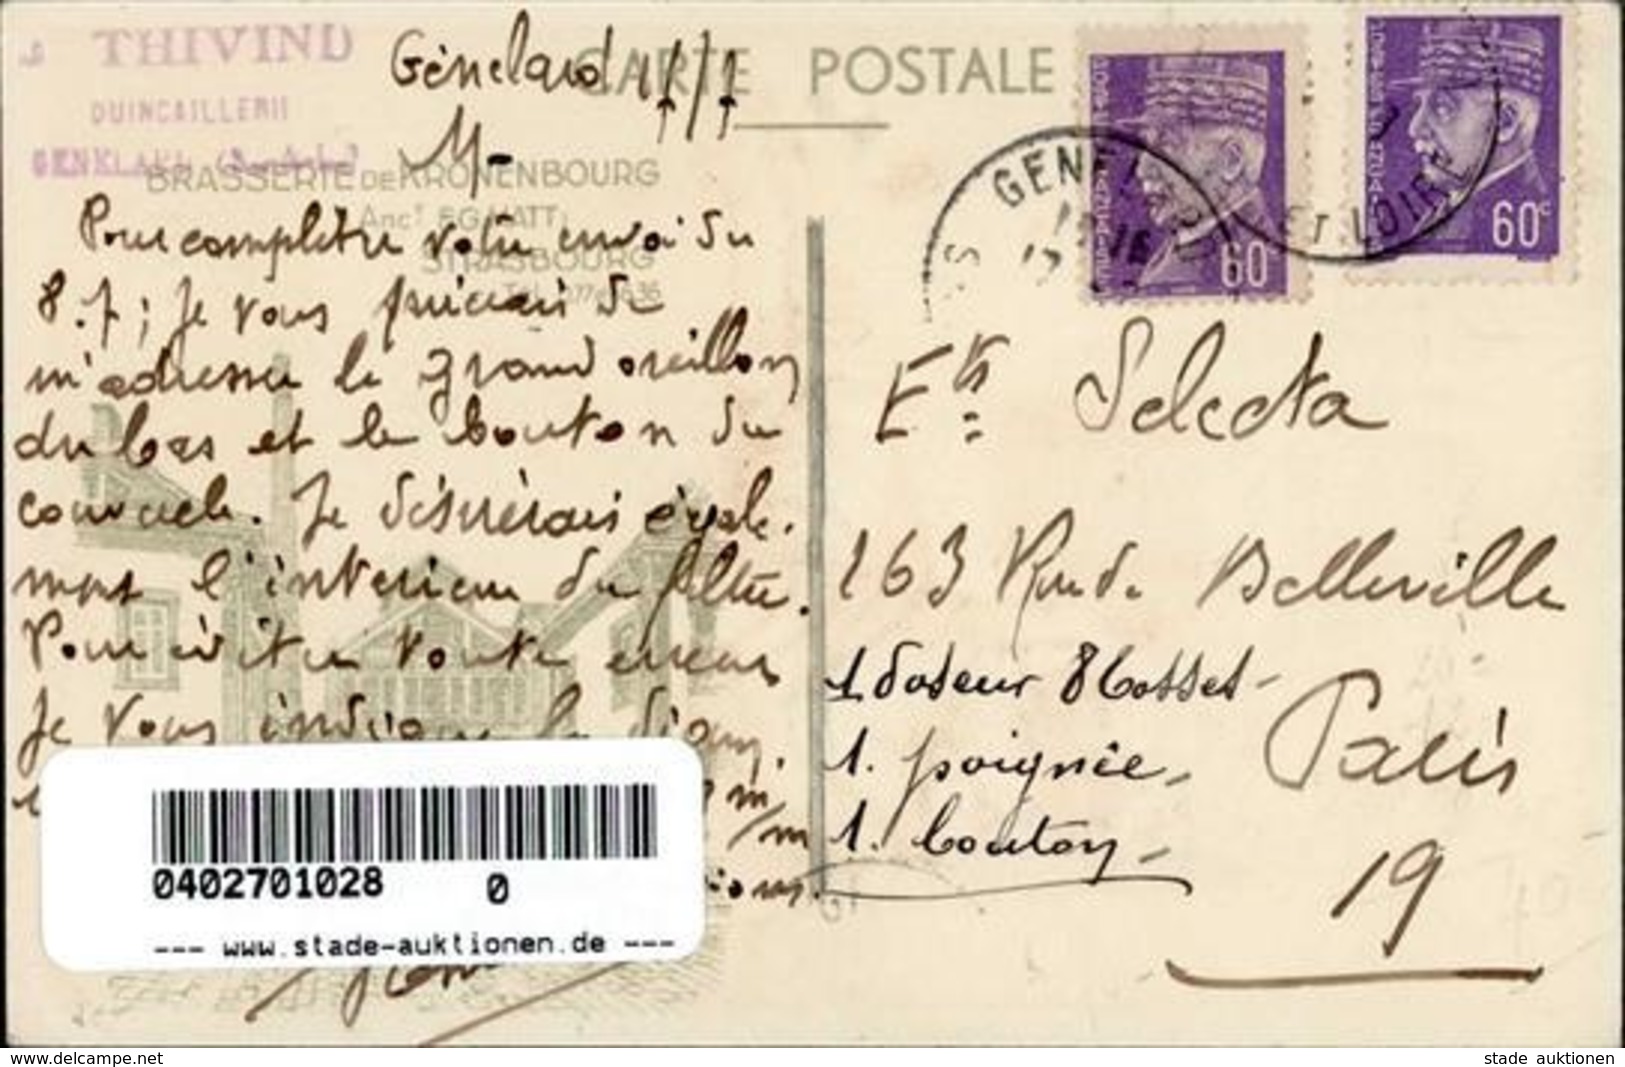 J THIVIND
QUINCAILLERIE
GENELARD (S.-&-L.)
CARTE POSTALE
Génelard
M-
BRASSERIE DE KRONENBOURG
Anct F.G. HATT
STRASBOURG
Pour complèter votre envoi du
8.7; Je vous prierais de
m'adresser le grand oreillon
du bas et le bouton du
couvercle. Je désirerais égale-
ment l'interieur du filtre.
Pour éviter toute erreur
Je vous indique le diam.
m/m
GENELARD
SAONE ET LOIRE
60
60c
Ets Selecta
163 Rue de Belleville
1 doseur 8 tasses -
1. poignée -
1. bouton -
Paris
19
0402701028 0
--- www.stade-auktionen.de ---
www.delcampe.net
stade auktionen